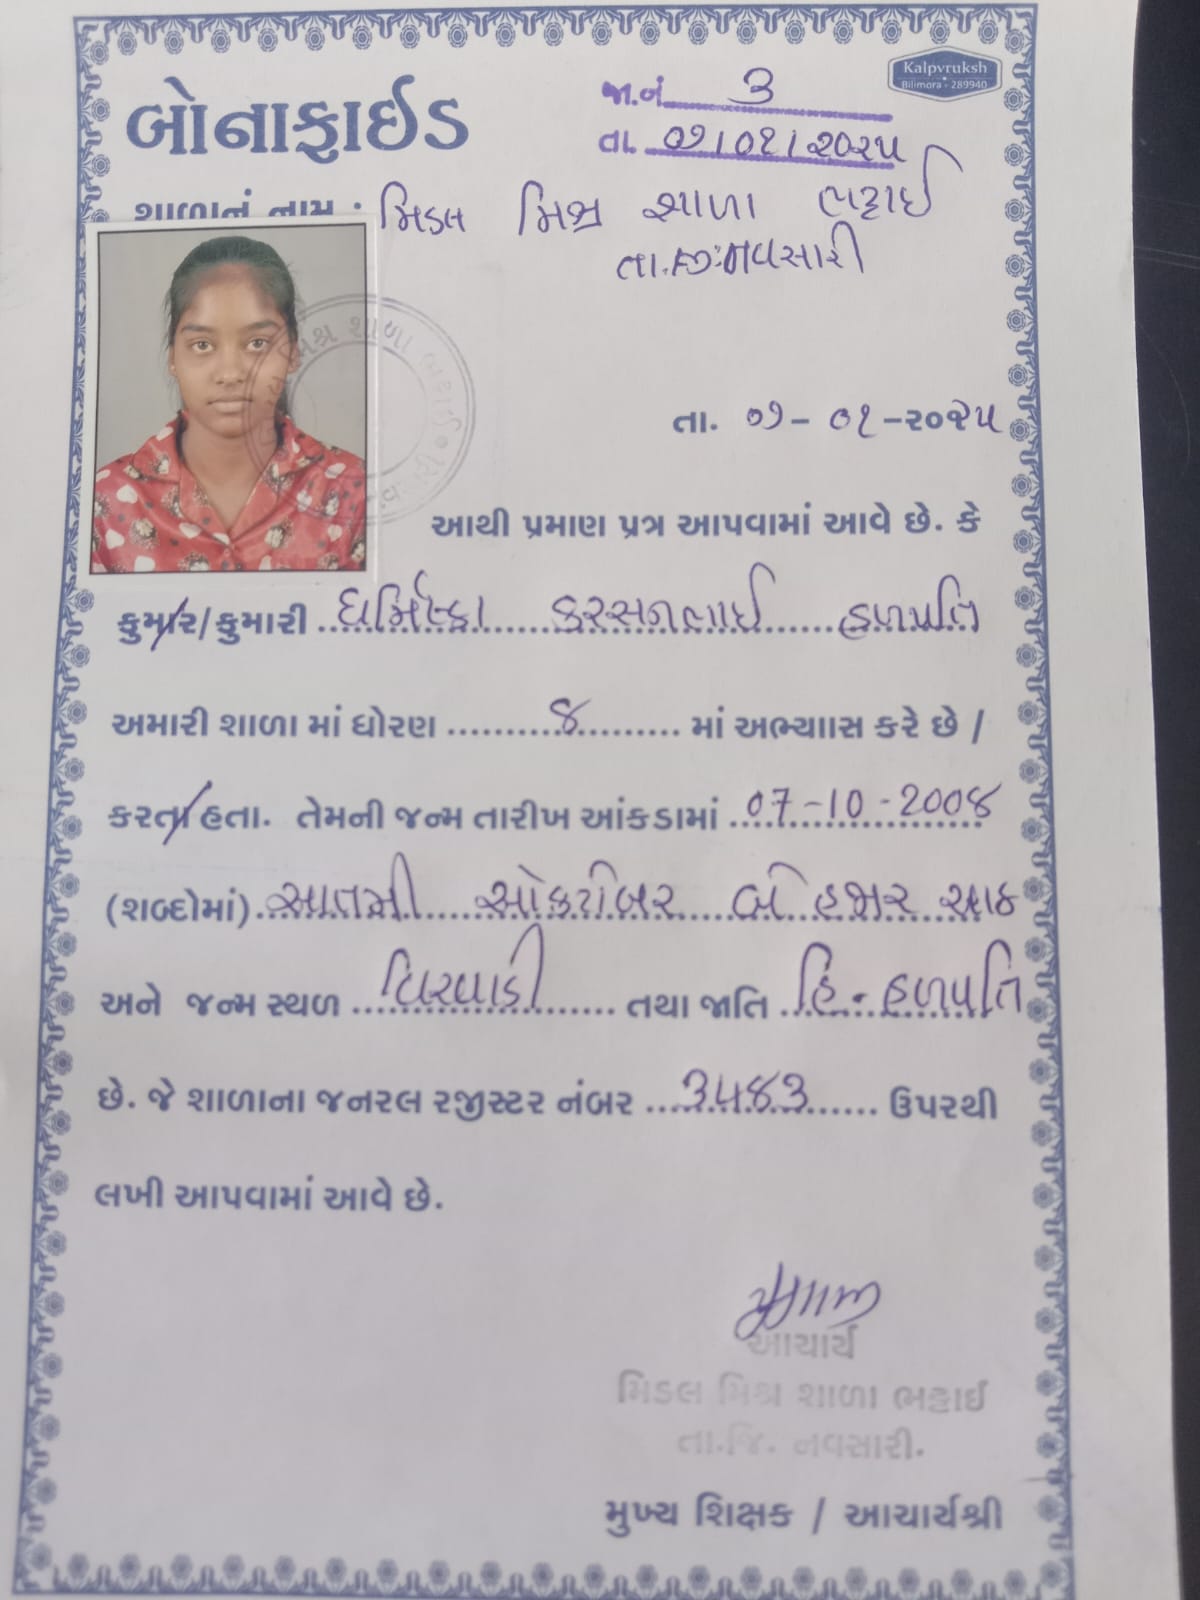 Kalpvruksh
Bilimora - 289940
બોનાફાઈડ
જા.નં. 3
તા. ૦૭/૦૧/૨૦૨૫
શાળાનું નામ : મિડલ મિશ્ર શાળા ભટ્ટાઈ
તા.જી:નવસારી
તા. ૦૭-૦૧-૨૦૨૫
આથી પ્રમાણ પત્ર આપવામાં આવે છે. કે
કુમાર/કુમારી ધર્મિષ્ઠા કરસનભાઈ હળપતિ
અમારી શાળા માં ધોરણ ૪ માં અભ્યાાસ કરે છે /
કરતા/હતા. તેમની જન્મ તારીખ આંકડામાં 07-10-2008
(શબ્દોમાં) સાતમી ઓકટોબર બે હજાર આઠ
અને જન્મ સ્થળ વિરવાડી તથા જાતિ હિ. હળપતિ
છે. જે શાળાના જનરલ રજીસ્ટર નંબર 3483 ઉપરથી
લખી આપવામાં આવે છે.
આચાર્ય
મિડલ મિશ્ર શાળા ભટ્ટાઈ
તા.જિ. નવસારી.
મુખ્ય શિક્ષક / આચાર્યશ્રી